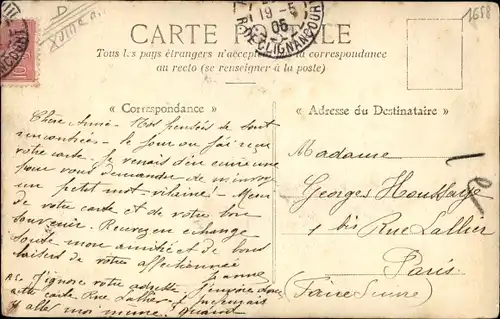 1658
19-5
05
R. DE CLIGNANCOURT
CARTE POSTALE
Tous les pays étrangers n'acceptent pas la correspondance
au recto (se renseigner à la poste)
« Correspondance »
« Adresse du Destinataire »
Chère Amie - Nos pensées se sont
rencontrées - le jour où j'ai reçu
votre carte. Je venais d'en écrire une
pour vous demander de m'envoyer
un petit mot - vilaine! Merci
de votre carte et de votre bon
souvenir. Recevez en échange
toute mon amitié et de bons
baisers de votre affectionnée
Jeanne
P.S. J'ignore votre adresse. J'envoie donc
cette carte Rue Lallier -
aller moi même. Quand
Madame
Georges Houssaye
1 bis Rue Lallier
Paris
(Faire Suivre)